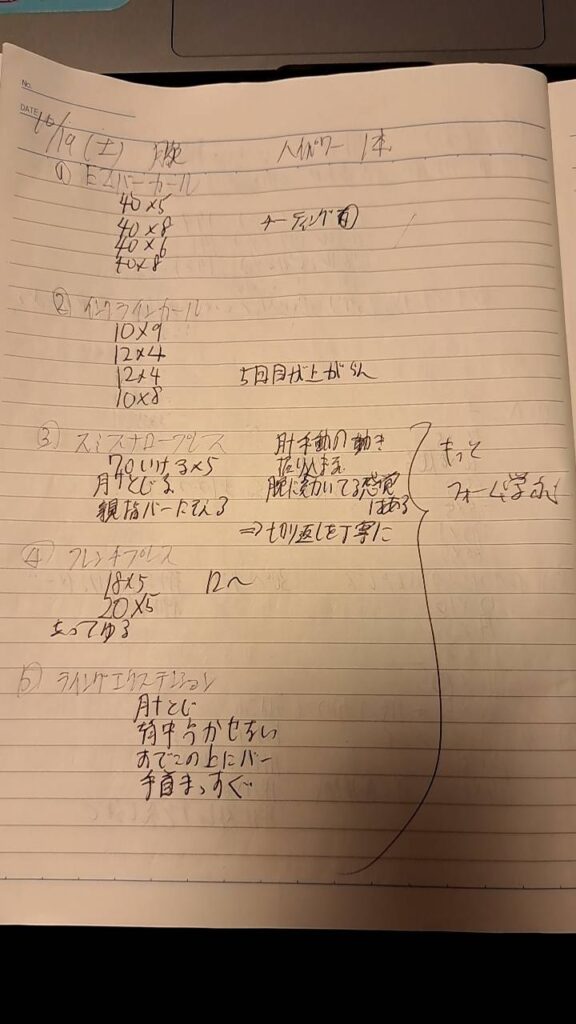 No.
DATE 10/19(土) 腕 ハイパワー 1本
① EZバーカール
40×5
40×8 チーティング有
40×6
40×8
② インクラインカール
10×9
12×4
12×4 5回目が上がらん
10×8
③ スミスナロープレス 肘手動の動き
70いける×5
肘とじる 腕に効いてる感覚はある
親指バーにそえる
⇒切り返しを丁寧に
もっとフォーム学ぶ
④ フレンチプレス
18×5 12〜
20×5
立ってやる
⑤ ライングエクステンション
肘とじ
背中うかせない
おでこの上にバー
手首まっすぐ